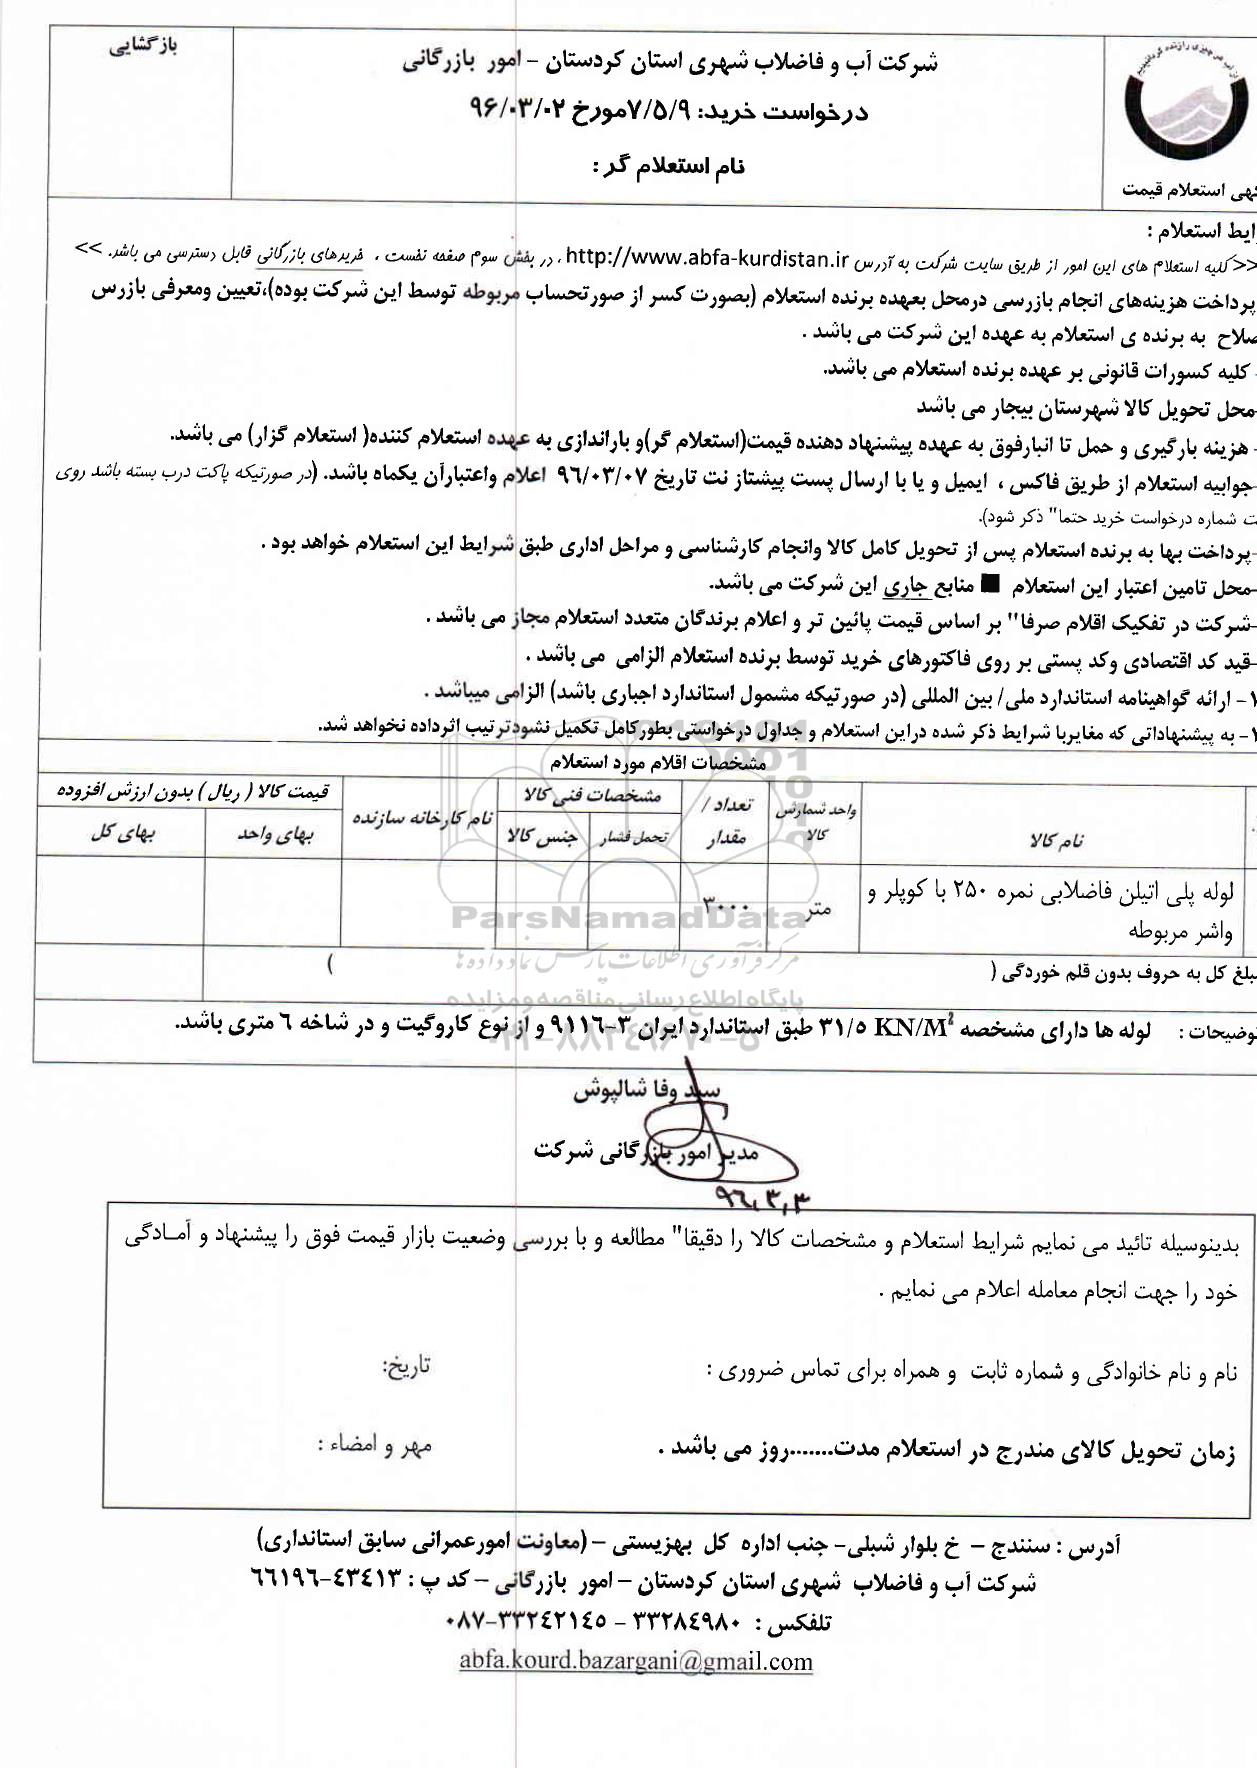 بازگشایی
شرکت آب و فاضلاب شهری استان کردستان – امور بازرگانی
درخواست خرید: ۷/۵/۹مورخ ۹۶/۰۳/۰۲
نام استعلام گر :
استعلام قیمت
استعلام :
<<کلیه استعلام های این امور از طریق سایت شرکت به آدرس http://www.abfa-kurdistan.ir ، در بخش سوم صفحه نخست ، خریدهای بازرگانی قابل دسترسی می باشد. >>
پرداخت هزینه‌های انجام بازرسی درمحل بعهده برنده استعلام (بصورت کسر از صورتحساب مربوطه توسط این شرکت بوده)،تعیین ومعرفی بازرس
به برنده ی استعلام به عهده این شرکت می باشد .
- کلیه کسورات قانونی بر عهده برنده استعلام می باشد.
-محل تحویل کالا شهرستان بیجار می باشد
- هزینه بارگیری و حمل تا انبارفوق به عهده پیشنهاد دهنده قیمت(استعلام گر)و باراندازی به عهده استعلام کننده( استعلام گزار) می باشد.
-جوابیه استعلام از طریق فاکس ، ایمیل و یا با ارسال پست پیشتاز نت تاریخ ۹۶/۰۳/۰۷ اعلام واعتبارآن یکماه باشد. (در صورتیکه پاکت درب بسته باشد روی
شماره درخواست خرید حتما" ذکر شود).
-پرداخت بها به برنده استعلام پس از تحویل کامل کالا وانجام کارشناسی و مراحل اداری طبق شرایط این استعلام خواهد بود .
-محل تامین اعتبار این استعلام ■ منابع جاری این شرکت می باشد.
-شرکت در تفکیک اقلام صرفا" بر اساس قیمت پائین تر و اعلام برندگان متعدد استعلام مجاز می باشد .
-قید کد اقتصادی وکد پستی بر روی فاکتورهای خرید توسط برنده استعلام الزامی می باشد .
- ارائه گواهینامه استاندارد ملی/ بین المللی (در صورتیکه مشمول استاندارد اجباری باشد) الزامی میباشد .
- به پیشنهاداتی که مغایربا شرایط ذکر شده دراین استعلام و جداول درخواستی بطورکامل تکمیل نشودترتیب اثرداده نخواهد شد.
مشخصات اقلام مورد استعلام
نام کالا
واحد شمارش کالا
تعداد / مقدار
مشخصات فنی کالا
تحمل فشار
جنس کالا
نام کارخانه سازنده
قیمت کالا ( ریال ) بدون ارزش افزوده
بهای واحد
بهای کل
لوله پلی اتیلن فاضلابی نمره ۲۵۰ با کوپلر و
واشر مربوطه
متر
۳۰۰۰
ParsNamadData
مرکز فرآوری اطلاعات پارس نماد داده‌ها
پایگاه اطلاع رسانی مناقصه و مزایده
کل به حروف بدون قلم خوردگی ( )
توضیحات : لوله ها دارای مشخصه ۳۱/۵ KN/M² طبق استاندارد ایران ۳-۹۱۱۶ و از نوع کاروگیت و در شاخه ۶ متری باشد.
سید وفا شالپوش
مدیر امور بازرگانی شرکت
۹۶,۳,۳
بدینوسیله تائید می نمایم شرایط استعلام و مشخصات کالا را دقیقا" مطالعه و با بررسی وضعیت بازار قیمت فوق را پیشنهاد و آمادگی
خود را جهت انجام معامله اعلام می نمایم .
نام و نام خانوادگی و شماره ثابت و همراه برای تماس ضروری :
تاریخ:
زمان تحویل کالای مندرج در استعلام مدت.......روز می باشد .
مهر و امضاء :
آدرس : سنندج – خ بلوار شبلی- جنب اداره کل بهزیستی – (معاونت امورعمرانی سابق استانداری)
شرکت آب و فاضلاب شهری استان کردستان – امور بازرگانی – کد پ : ۴۳۴۱۳-۶۶۱۹۶
تلفکس : ۳۳۲۸۴۹۸۰ - ۳۳۲۴۲۱۴۵-۰۸۷
abfa.kourd.bazargani@gmail.com